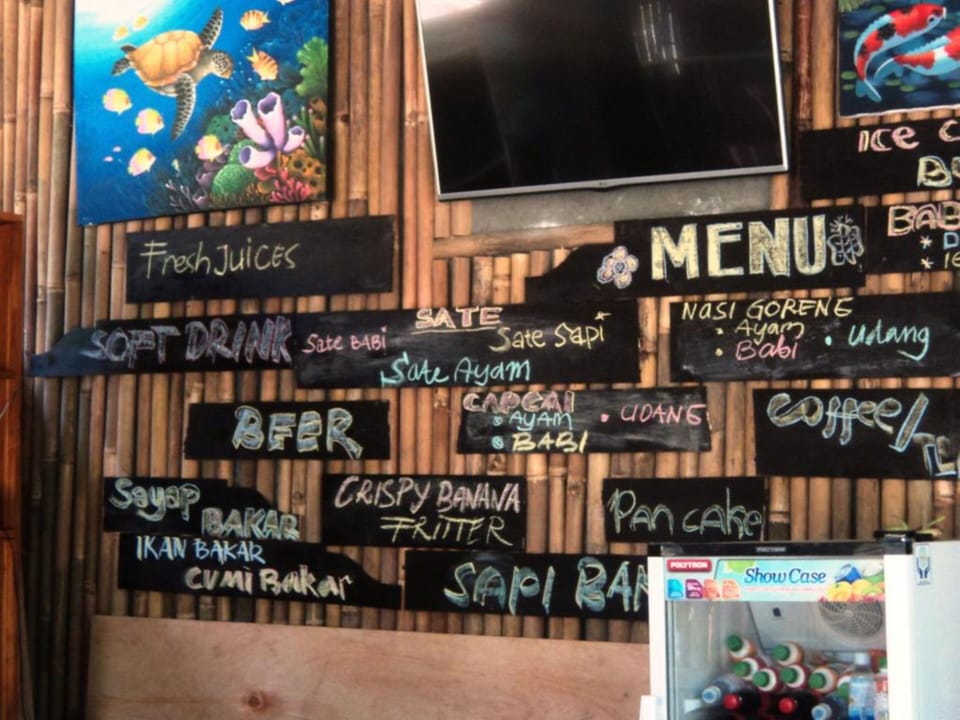 ICE
MENU
BAB
Fresh Juices
SOFT DRINK
SATE
Sate BABI
Sate Sapi
Sate Ayam
NASI GORENG
Ayam
Babi
Udang
BEER
CAPCAI
AYAM
UDANG
BABI
Coffee/
Sayap
BAKAR
CRISPY BANANA
FRITTER
Pancake
IKAN BAKAR
CUMI Bakar
SAPI BAN
POLYTRON
Show Case